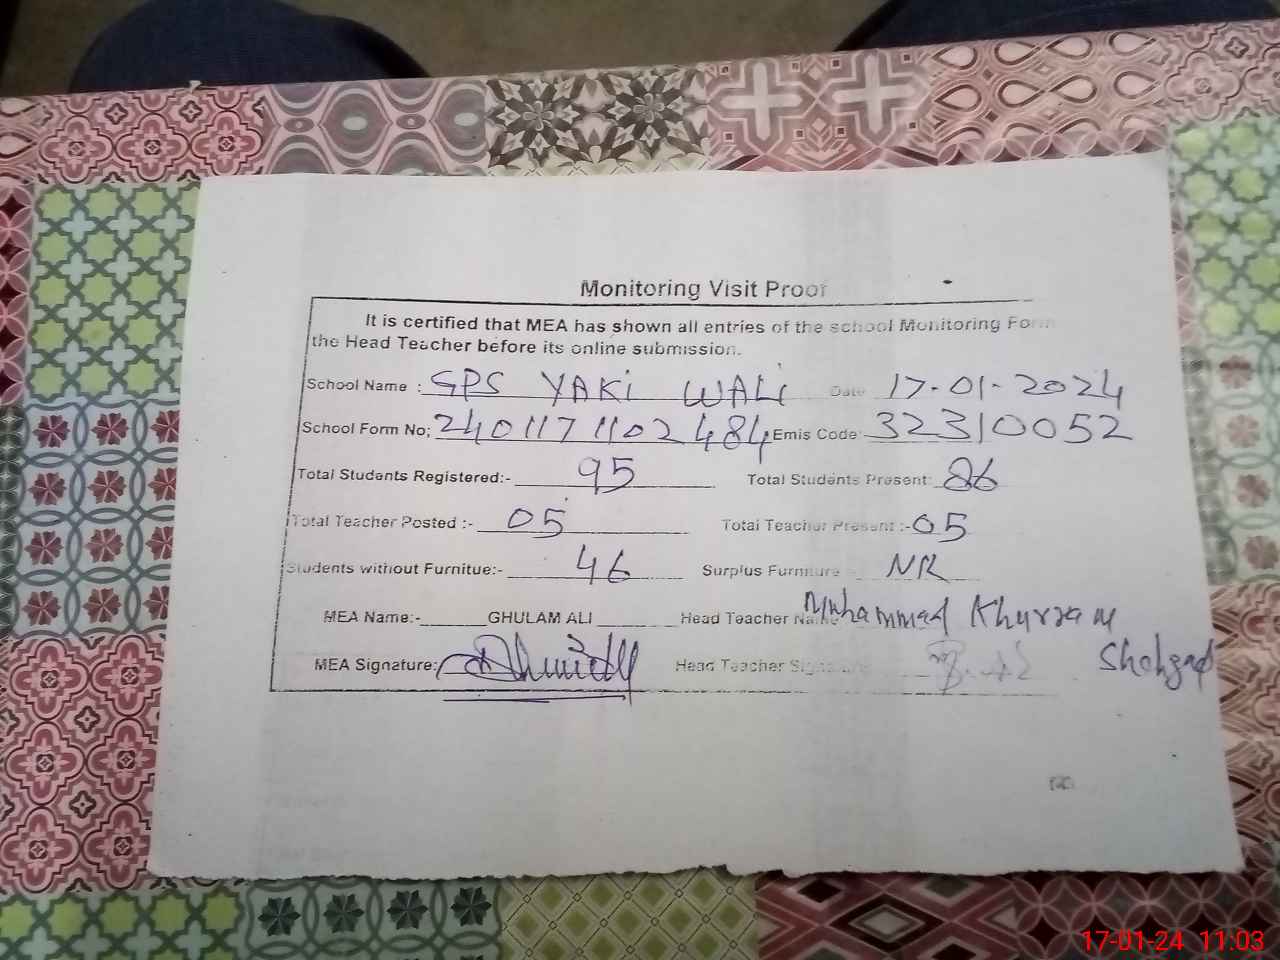 Monitoring Visit Proof
It is certified that MEA has shown all entries of the school Monitoring Form
the Head Teacher before its online submission.
School Name : GPS YAKI WALI Date 17-01-2024
School Form No; 2401171102484 Emis Code: 32310052
Total Students Registered:- 95 Total Students Present: 86
Total Teacher Posted :- 05 Total Teacher Present :- 05
Students without Furnitue:- 46 Surplus Furniture NR
MEA Name:- GHULAM ALI Head Teacher Name Muhammad Khurram
Shahzad
MEA Signature: Head Teacher Signature
17-01-24 11:03